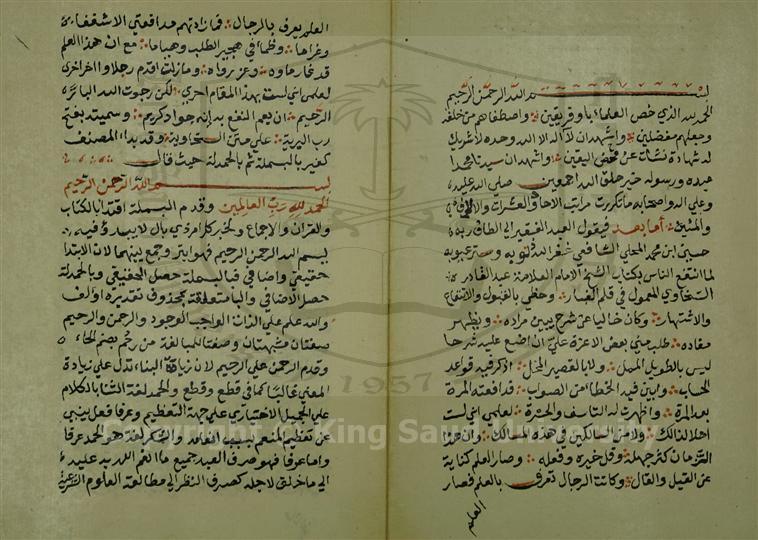 بسم الله الرحمن الرحيم
الحمد لله الذي خص العلماء باوفر يقين واصطفاهم من خلقه
وجعلهم مفضلين واشهد ان لا اله الا الله وحده لا شريك
له شهادة نشأت عن محض اليقين واشهد ان سيدنا محمدا
عبده ورسوله خير خلق الله اجمعين صلى الله عليه
وعلى اله واصحابه ما تكررت مراتب الاحاد والعشرات
والمئين اما بعد فيقول العبد الفقير الى الطاف ربه
حسين ابن محمد المحلي الشافعي غفر الله ذنوبه وستر عيوبه
لما انتفع الناس بكتاب الشيخ الامام العلامة عبد القادر
السخاوي المعمول في قلم الغبار وحظي بالقبول والانتفاع
والاشتهار وكان خاليا عن شرح يبين مراده ويظهر
مفاده طلب مني بعض الاعزة علي ان اضع عليه شرحا
ليس بالطويل الممل ولا بالقصير المخل اذكر فيه قواعد
الحساب وابين فيه الخطا من الصواب فدافعته المرة
بعد المرة واظهرت له التاسف والحسرة لعلمي اني لست
اهلا لذالك ولا من السالكين في هذه المسالك وان هذا
الزمان كثر جهله وقل خيره وفعله وصار العلم كناية
عن القيل والقال وكانت الرجال تعرف بالعلم فصار
العلم
العلم يعرف بالرجال فما زادتهم مدافعتي الا شغفا
وغراما وظما في هجير الطلب وهياما مع ان هذا العلم
قد غار ماؤه وعز رواه وما زلت اقدم رجلا واؤخر اخرى
لعلمي اني لست بهذا المقام احرى لكن رجوت الله البا
الرحيم ان يعم النفع به إنه جواد كريم وسميته بفتح
رب البرية على متن السخاوية وقد بدا المصنف
كغيره بالبسملة ثم بالحمدلة حيث قال
بسم الله الرحمن الرحيم
الحمد لله رب العالمين وقدم البسملة اقتدا بالكتاب
والقران والاجماع ولخبر كل امر ذي بال لا يبدؤ فيه
ببسم الله الرحمن الرحيم فهو ابتر وجمع بينهما لان الابتدا
حقيقي واضافي فبالبسملة حصل الحقيقي وبالحمدلة
حصل الاضافي والبا متعلقة بمحذوف تقديره اؤلف
والله علم على الذات الواجب الوجود والرحمن والرحيم
صفتان مشبهتان وصفتا للمبالغة من رحم بضم الحاء
وقدم الرحمن على الرحيم لان زيادة البناء تدل على زيادة
المعنى غالبا كما في قطع وقطع والحمد لغة الثنا بالكلام
على الجميل الاختياري على جهة التعظيم وعرفا فعل ينبي
عن تعظيم المنعم بسبب انعامه والشكر لغة هو الحمد عرفا
واما عرفا فهو صرف العبد جميع ما انعم الله به عليه
الى ما خلق لاجله كصرف النظر الى مطالعة العلوم الشرعية
Copyright © King Saud University
1957